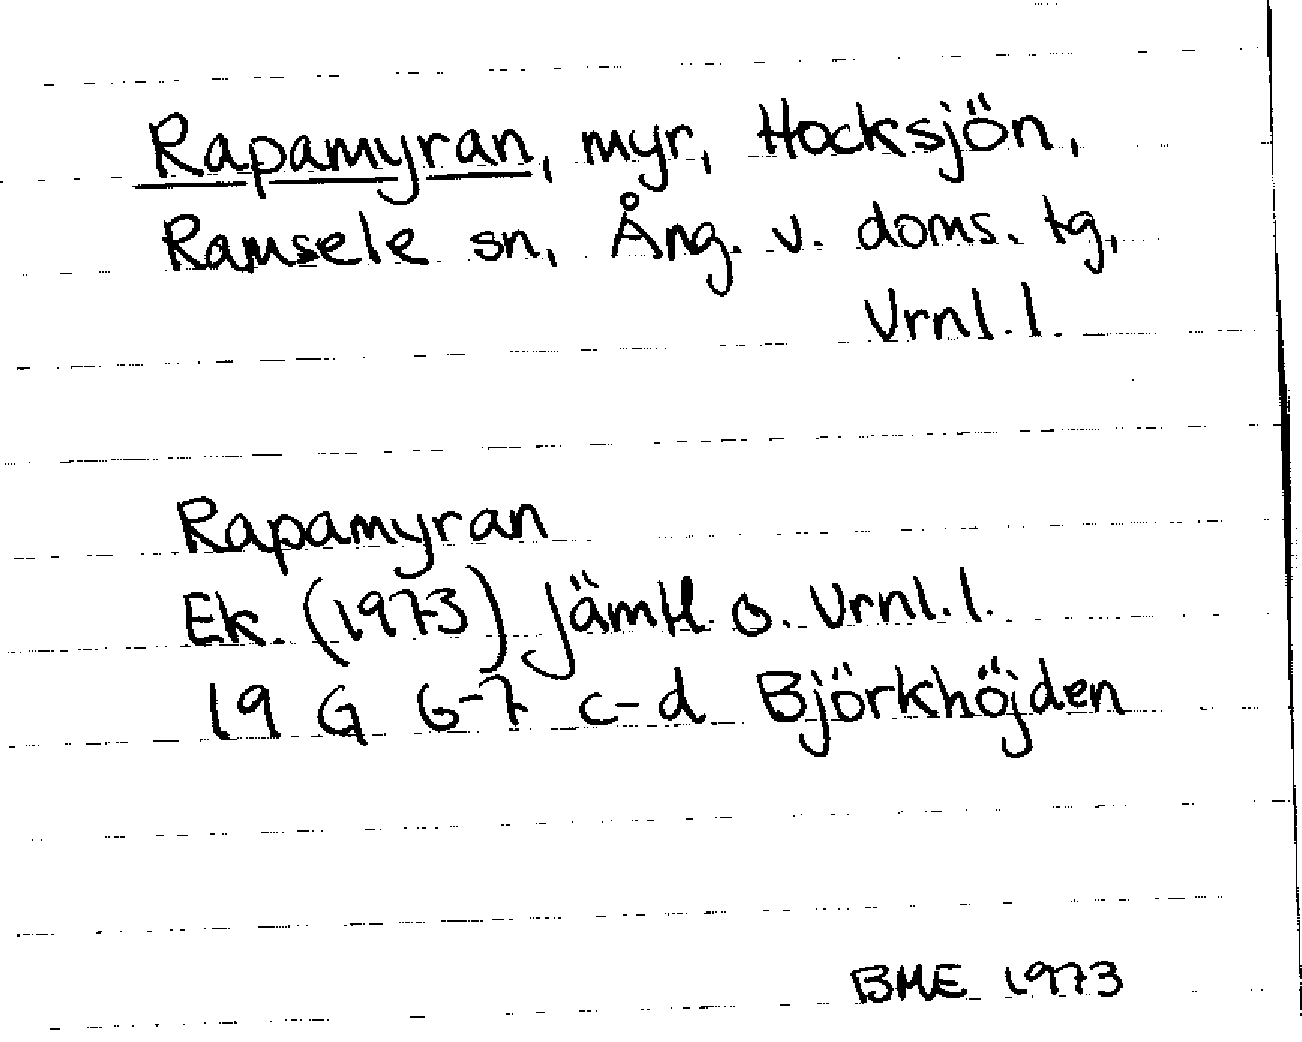 Rapamyran, myr, Hocksjön,
Ramsele sn, Ång. v. doms. tg,
Vrnl. l.
Rapamyran
Ek. (1973) Jämtl. o. Vrnl. l.
19 G 6-7 c-d Björkhöjden
BME 1973